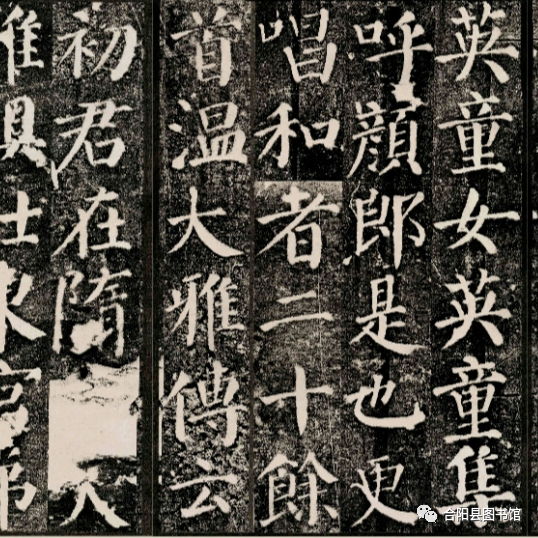 英童女英童集
呼顔郎是也更
唱和者二十餘
首温大雅傳云
初君在隋
合阳县图书馆